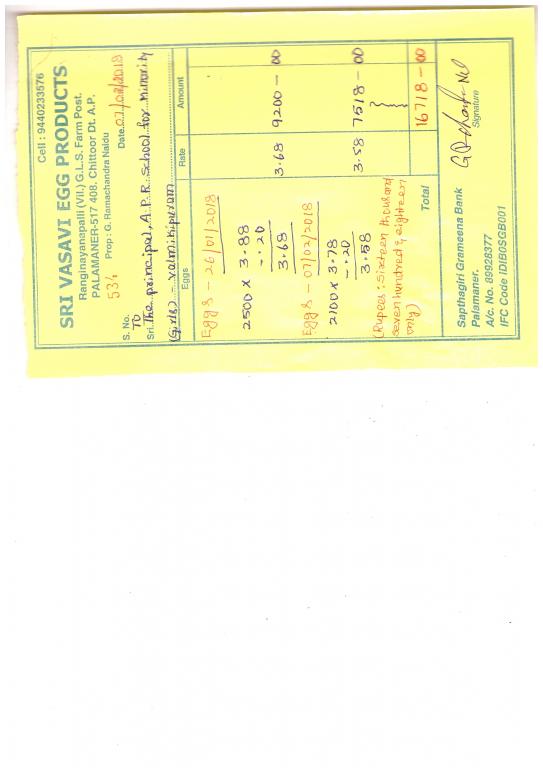 Cell : 9440233576
SRI VASAVI EGG PRODUCTS
Ranginayanapalli (Vil.) G.L.S. Farm Post.
PALAMANER-517 408. Chittoor Dt. A.P.
Prop : G. Ramachandra Naidu
S. No. 534 Date 07/02/2018
TO
Sri. The principal, A.P.R. school for minority
(Girls) - valmikipuram
Eggs Rate Amount
Eggs - 26/01/2018
2500 x 3.88
- .20
3.68 3.68 9200 - 00
Eggs - 07/02/2018
2100 x 3.78
- .20
3.58 3.58 7518 - 00
(Rupees: sixteen thousand
seven hundred & eighteen
only)
Total 16718 - 00
Sapthagiri Grameena Bank
Palamaner.
A/c. No. 89928377
IFC Code IDIB0SGB001
Signature